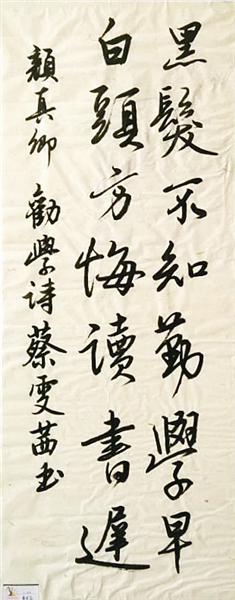 黑髮不知勤學早
白頭方悔讀書遲
顏真卿 勸學詩 蔡雯茜书